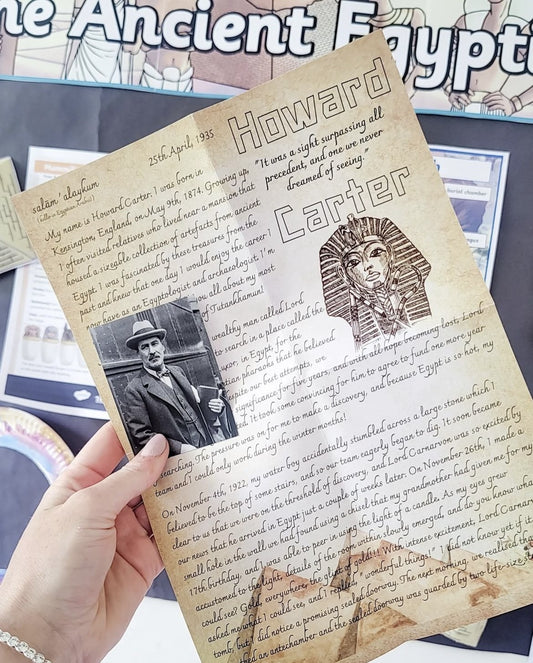 he Ancient Egypti
Howard
Carter
"It was a sight surpassing all
precedent, and one we never
dreamed of seeing."
25th April, 1935
salām ʿalaykum
(Hello in Egyptian Arabic)
My name is Howard Carter. I was born in
Kensington, England, on May 9th, 1874. Growing up,
I often visited relatives who lived near a mansion that
housed a sizeable collection of artefacts from ancient
Egypt. I was fascinated by these treasures from the
past and knew that one day I would enjoy the career I
now have as an Egyptologist and archaeologist. I'm
you all about my most
of Tutankhamun!
wealthy man called Lord
to search in a place called the
uxor, in Egypt, for the
tian pharaohs that he believed
espite our best attempts, we
significance for five years, and with all hope becoming lost, Lord
d. It took some convincing for him to agree to fund one more year
searching. The pressure was on for me to make a discovery, and because Egypt is so hot, my
team and I could only work during the winter months!
On November 4th, 1922, my water boy accidentally stumbled across a large stone which I
believed to be the top of some stairs, and so our team eagerly began to dig. It soon became
clear to us that we were on the threshold of discovery, and Lord Carnarvon was so excited by
our news that he arrived in Egypt just a couple of weeks later. On November 26th, I made a
small hole in the wall we had found using a chisel that my grandmother had given me for my
17th birthday, and I was able to peer in using the light of a candle. As my eyes grew
accustomed to the light, details of the room within slowly emerged, and do you know wha
could see? Gold, everywhere the glint of gold!!! With intense excitement, Lord Carnarv
asked me what I could see, and I replied, "wonderful things!" I did not know yet if it
tomb, but I did notice a promising sealed doorway. The next morning, we realised tha
red an antechamber and the sealed doorway was guarded by two life-size
burial chamber